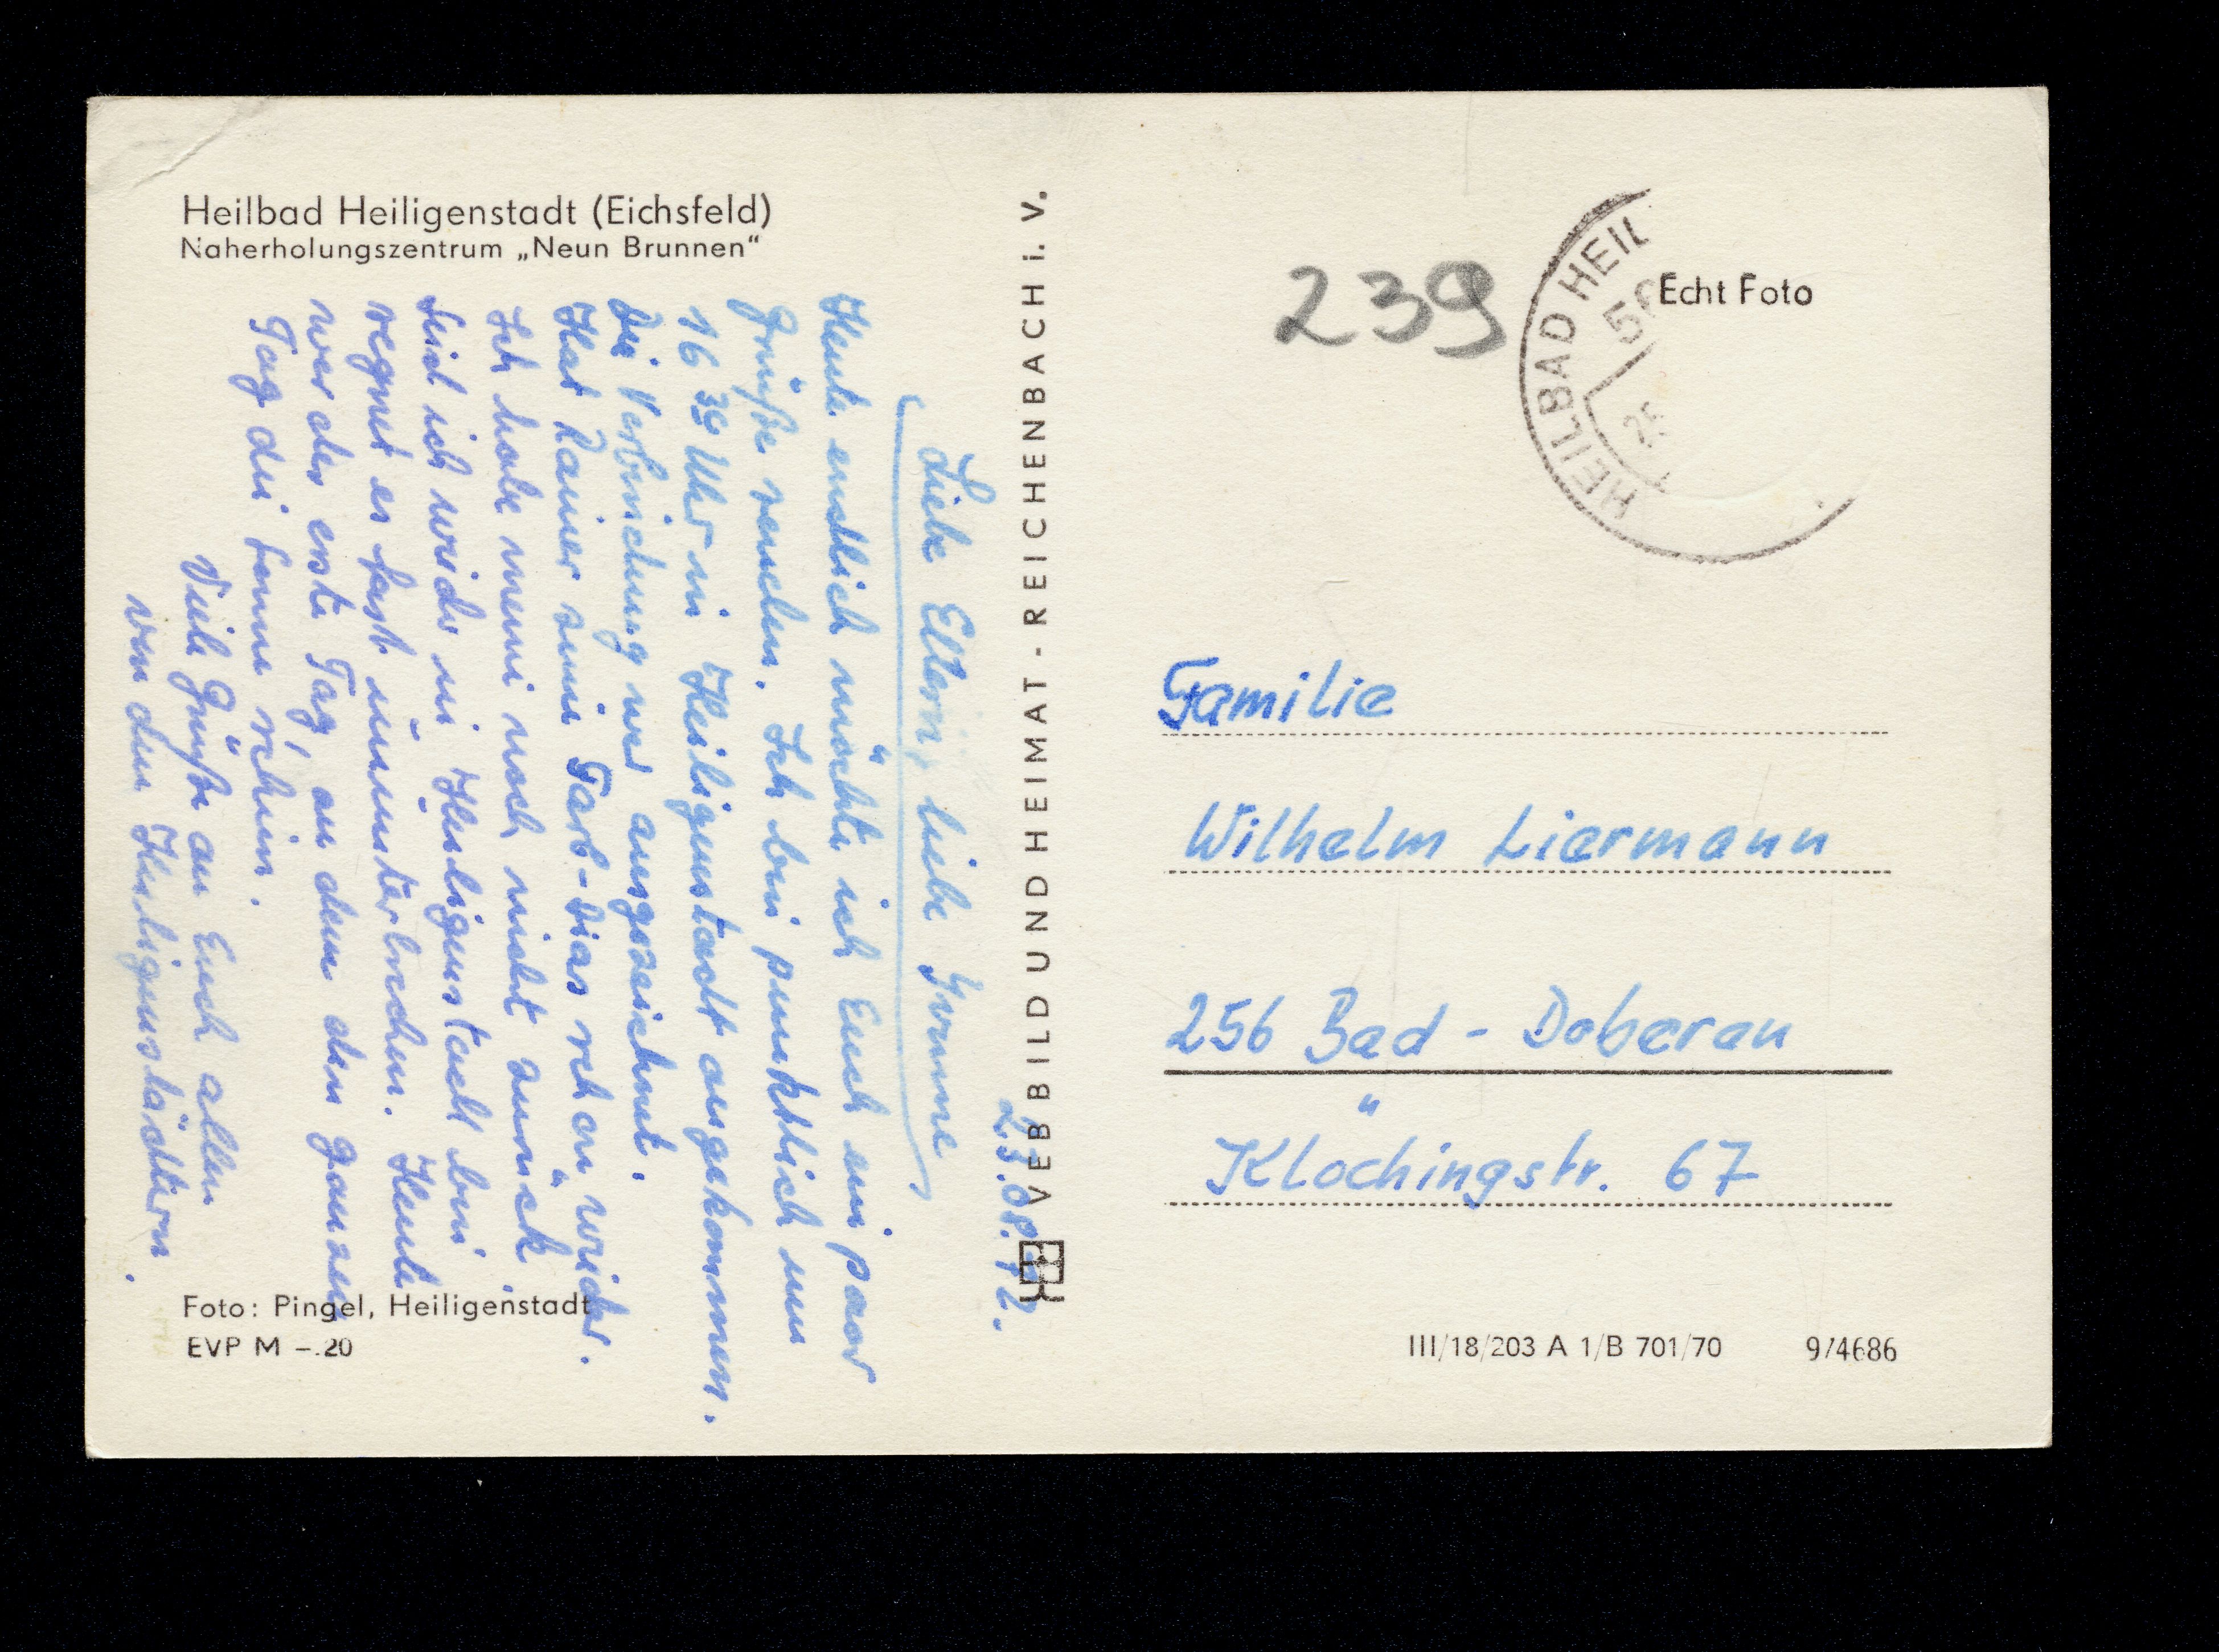 Heilbad Heiligenstadt (Eichsfeld)
Naherholungszentrum „Neun Brunnen“
23.08.72.
Liebe Eltern, liebe Yvonne
Heute endlich möchte ich Euch ein paar
Grüße senden. Ich bin pünktlich um
16 39 Uhr in Heiligenstadt angekommen.
Die Verbindung war ausgezeichnet.
Hat Rainer seine Farb-Dias schon wieder.
Ich habe meine noch nicht zurück.
Seid ich wieder in Heiligenstadt bin
regnet es fast ununterbrochen. Heute
war der erste Tag, an dem den ganzen
Tag die Sonne schien.
Viele Grüße an Euch allen
von den Heiligenstädtern.
Foto: Pingel, Heiligenstadt
EVP M –.20
VEB BILD UND HEIMAT - REICHENBACH i. V.
239
HEILBAD HEIL
Echt Foto
Familie
Wilhelm Liermann
256 Bad - Doberan
"
Klöchingstr. 67
III/18/203 A 1/B 701/70 9/4686